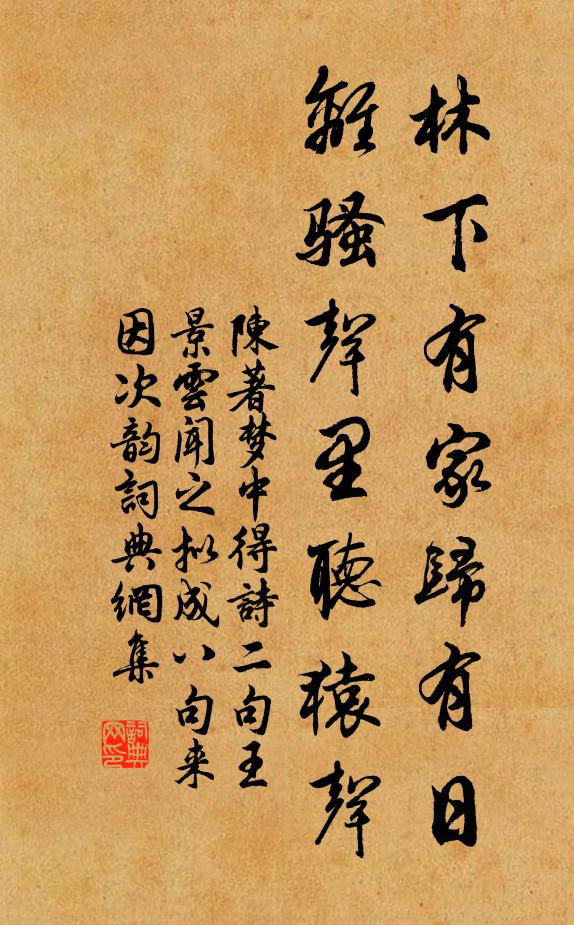 林下有家歸有日
離騷聲里聽猿聲
陳著梦中得詩二句王
景雲闻之拟成八句来
因次韵詞典網集
詞典
网印